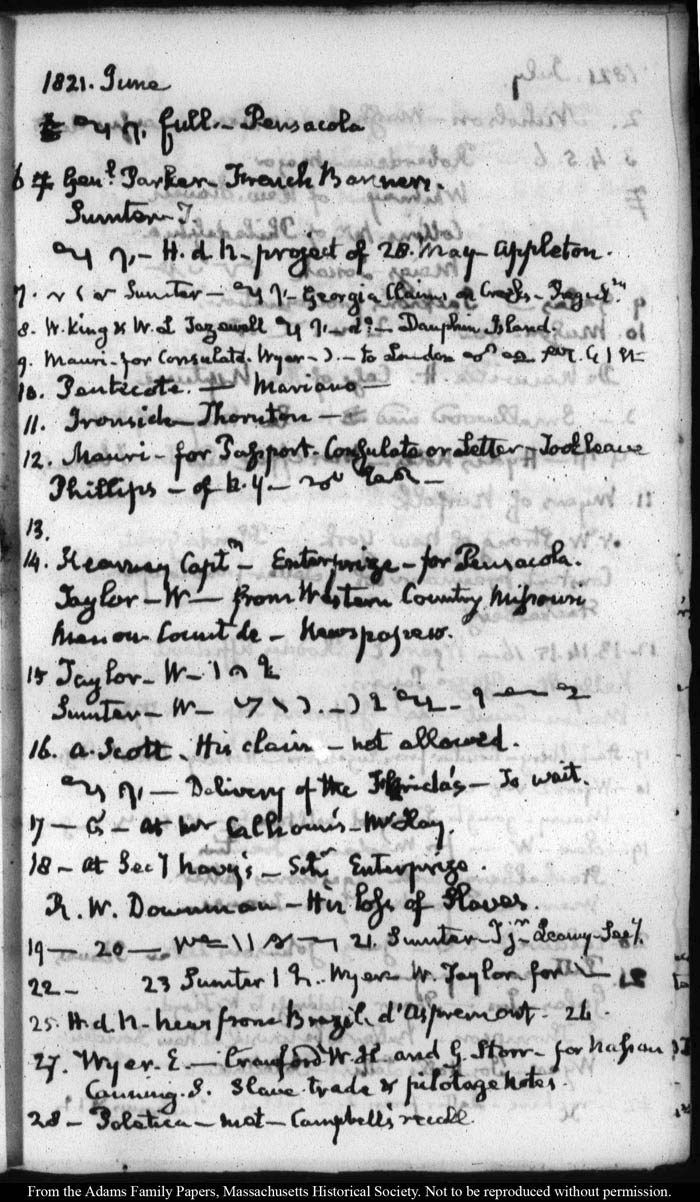 1821. June
full - Pensacola
6 Genl. Parker - French Banners.
Sumter - T
H. d. N - project of 28. May - Appleton.
7. Sumter - Georgia Claims on Creeks -
8. W. King & W. S Tazewell - do - Dauphin Island.
9. Mauri - for Consulate. Wyer - - to London
10. Pentecote. - Mariano -
11. Ironside Thornton -
12. Mauri - for Passport. Consulate or Letter - Took leave
Phillips - of N. Y -
13.
14. Kearney Captn - Enterprize - for Pensacola.
Taylor - W - from Western Country Missouri
Menou Count de - Newspapers.
15 Taylor - W -
Sumter - W -
16. A. Scott - His claim - not allowed.
Delivery of the Florida's - To wait.
17 - G - at Mr Calhoun's - McKay.
18 - at Secy Navy's - Schr Enterprize.
R. W. Downman - His loss of Slaves.
19 - 20 - 21. Sumter - T jr - Leamy - Secy.
22 - 23 Sumter Wyer W. Taylor for
25. H. d. N - news from Brazil d'Aspremont - 26.
27. Wyer. E. - Crawford W. H. and G. Storr - for Nassau
Canning. S. Slave trade & pilotage notes.
28 - Poletica - met - Campbell's recall.
From the Adams Family Papers, Massachusetts Historical Society. Not to be reproduced without permission.